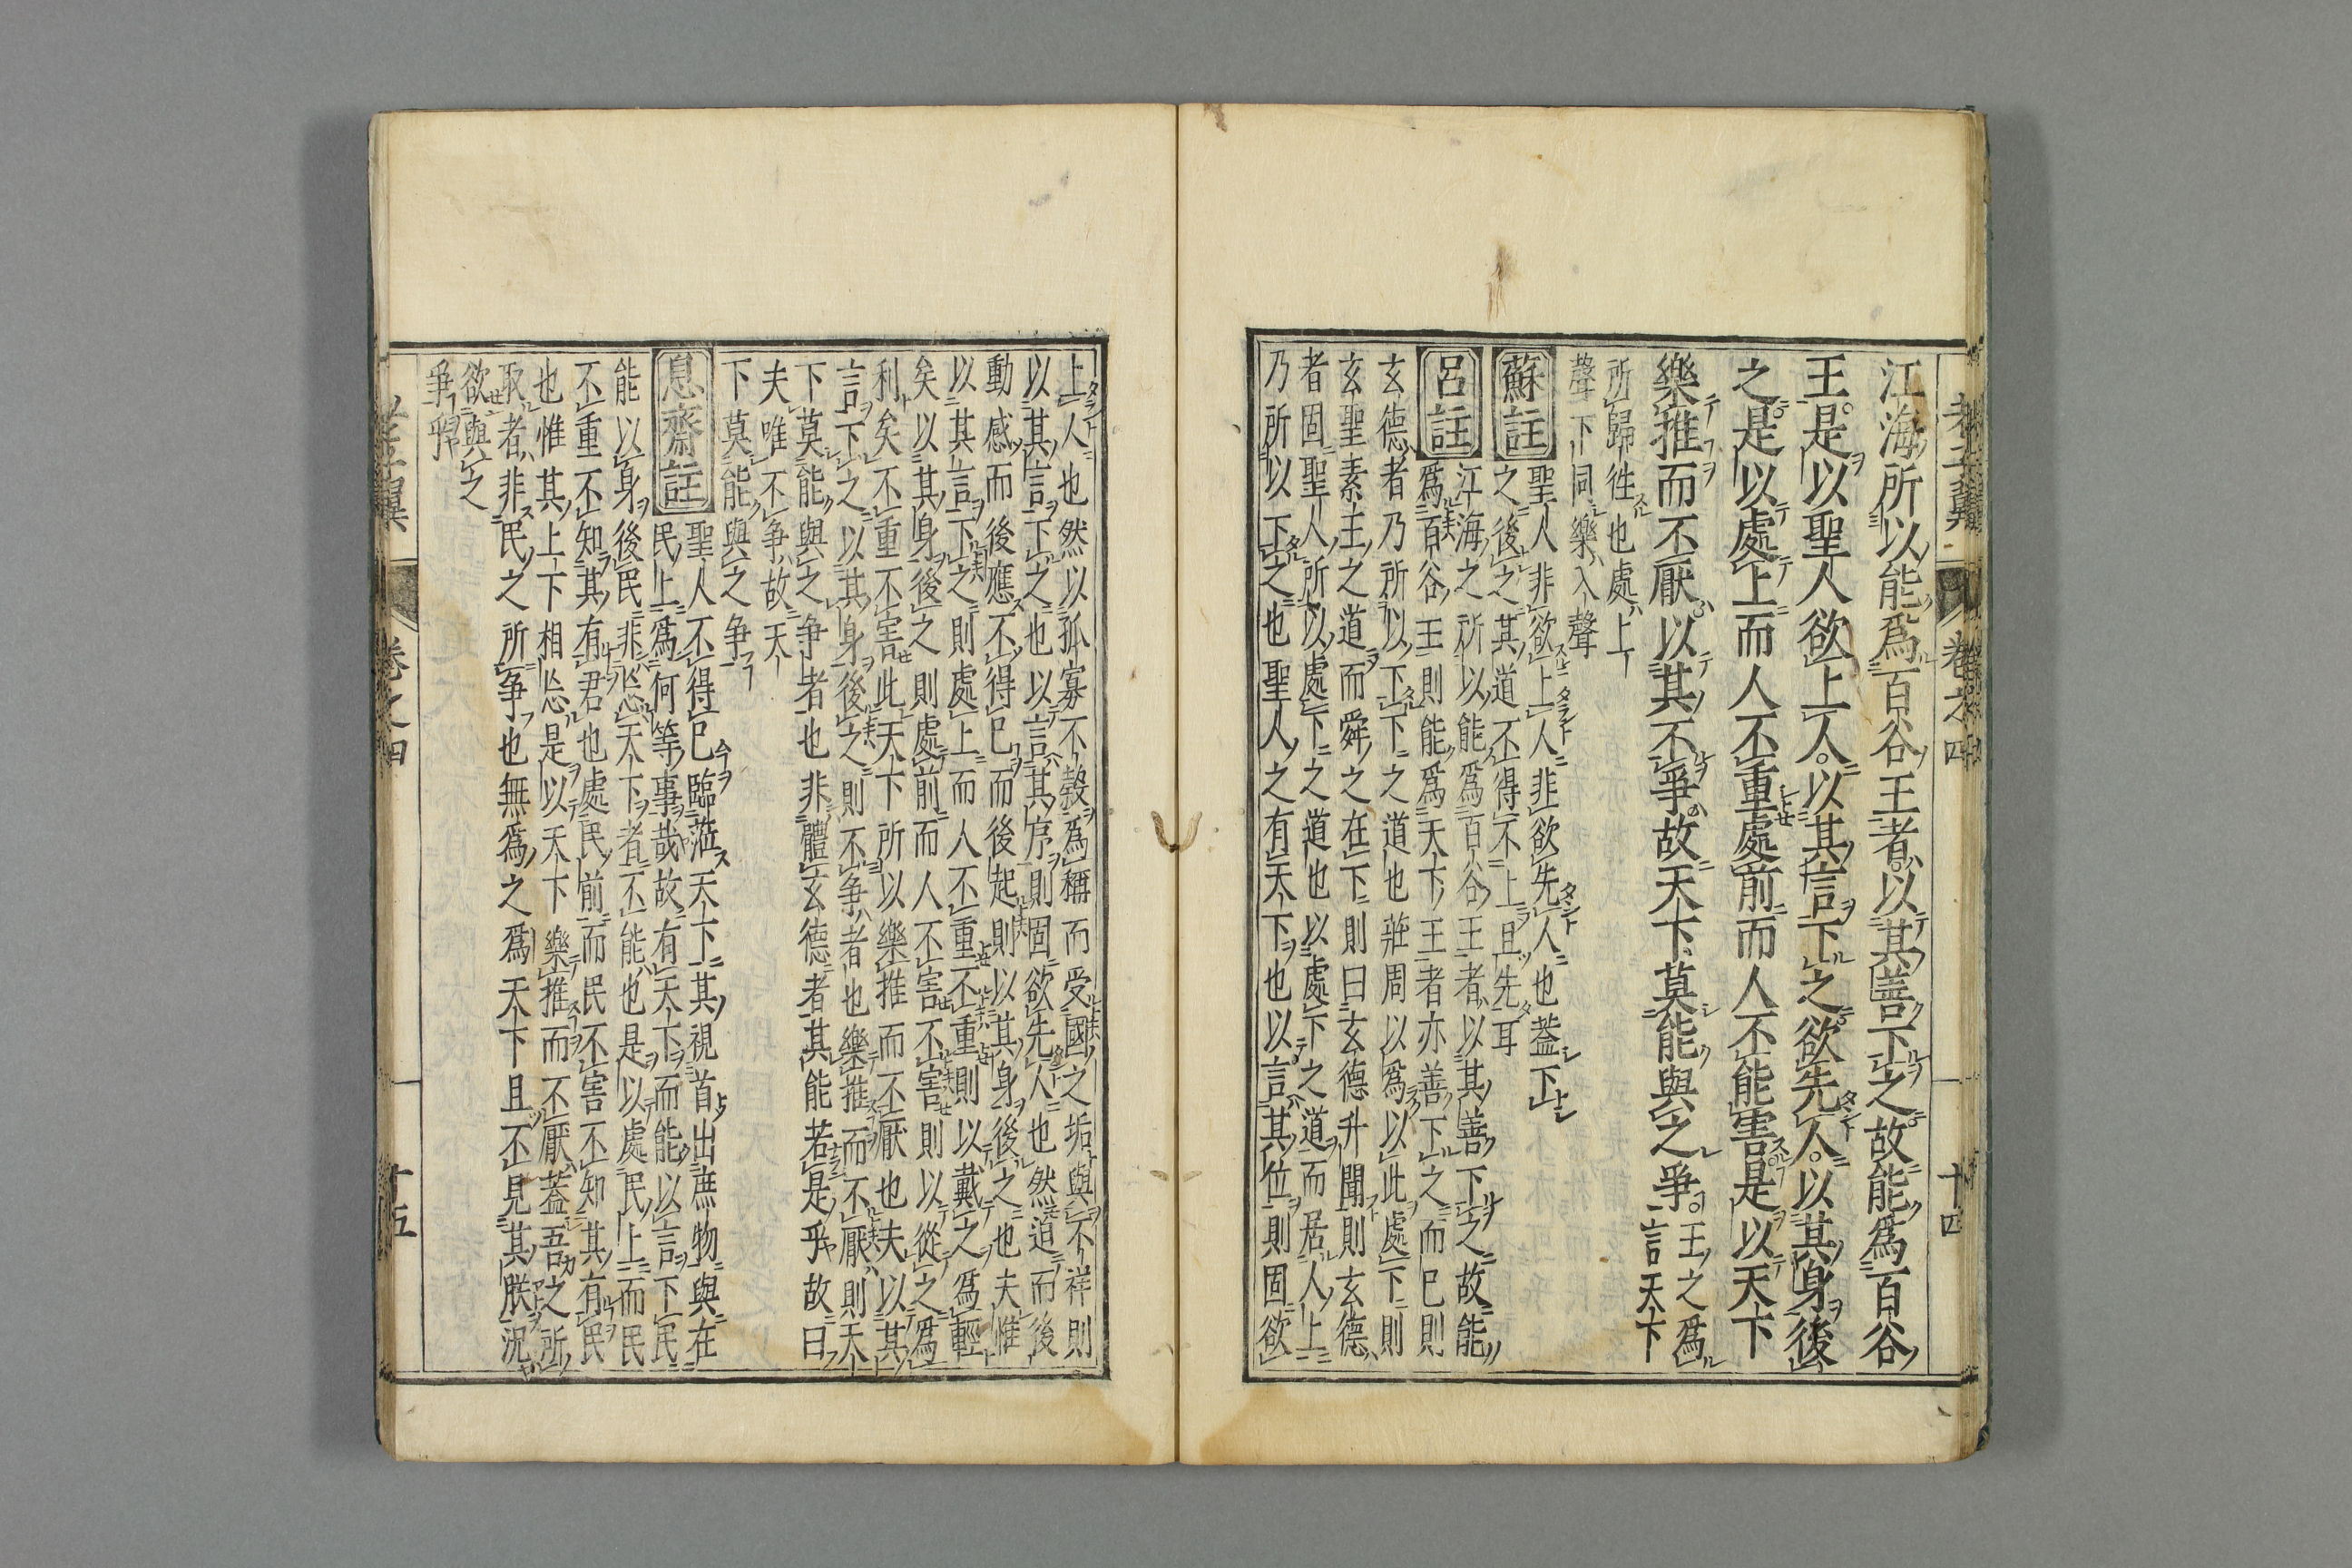 老子翼 卷之四 十四
江海所以能爲百谷王者以其善下之故能爲百谷
王是以聖人欲上人以其言下之欲先人以其身後
之是以處上而人不重處前而人不能害是以天下
樂推而不厭以其不爭故天下莫能與之爭王之爲
言天下
所歸徃也處上
聲下同樂入聲
蘇註
聖人非欲上人非欲先人也蓋下
之後之其道不得不上且先耳
呂註
江海之所以能爲百谷王者以其善下之故能
爲百谷王則能爲天下王者亦善下之而已則
玄德者乃所以下下之道也莊周以爲以此處下則
玄聖素王之道而舜之在下則曰玄德升聞則玄德
者固聖人所以處下之道也以處下之道而居人上
乃所以下之也聖人之有天下也以言其位則固欲
上人也然以孤寡不穀爲稱而受國之垢與不祥則
以其言下之也以言其序則固欲先人也然道而後
動感而後應不得已而後起則以其身後之也夫惟
以其言下之則處上而人不重不重則以戴之爲輕
矣以其身後之則處前而人不害不害則以從之爲
利矣不重不害此天下所以樂推而不厭也夫以其
言下之以其身後之則不爭者也樂推而不厭則天
下莫能與之爭者也非體玄德者其能若是乎故曰
夫唯不爭故天
下莫能與之爭
息齋註
聖人不得已臨蒞天下其視首出庶物與在
民上爲何等事哉故有天下而能以言下民
能以身後民非忘天下者不能也是以處民上而民
不重不知其有君也處民前而民不害不知其有民
也惟其上下相忘是以天下樂推而不厭蓋吾之所
取者非民之所爭也無爲之爲天下且不見其朕況
欲與之
爭乎
老子翼 卷之四 十五